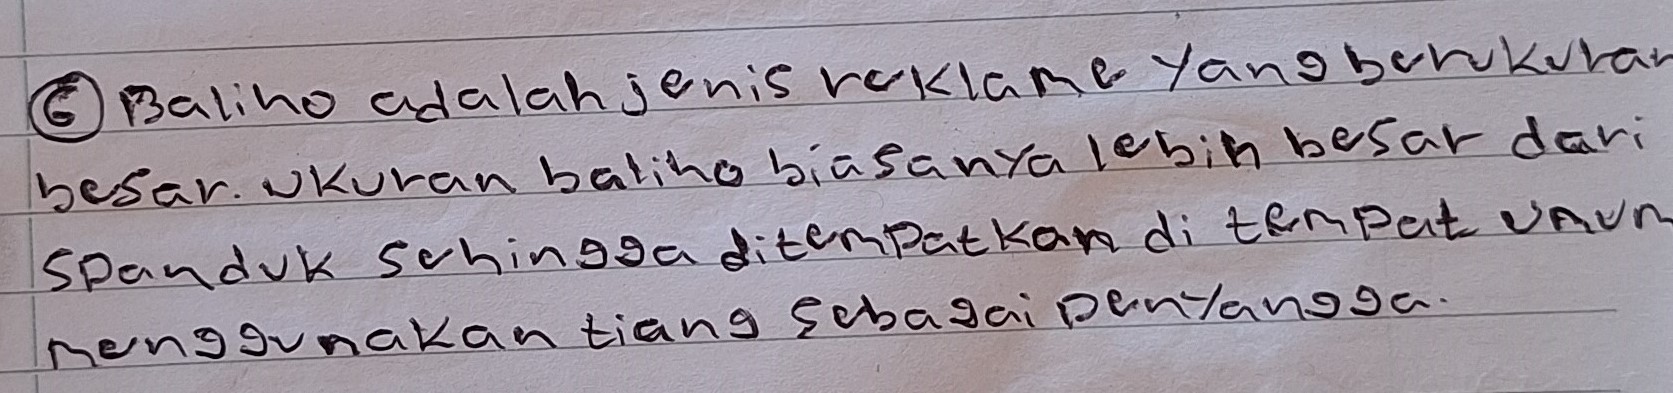 ⑥ Baliho adalah jenis reklame yang berukuran
besar. Ukuran baliho biasanya lebih besar dari
spanduk sehingga ditempatkan di tempat umum
menggunakan tiang sebagai penyangga.